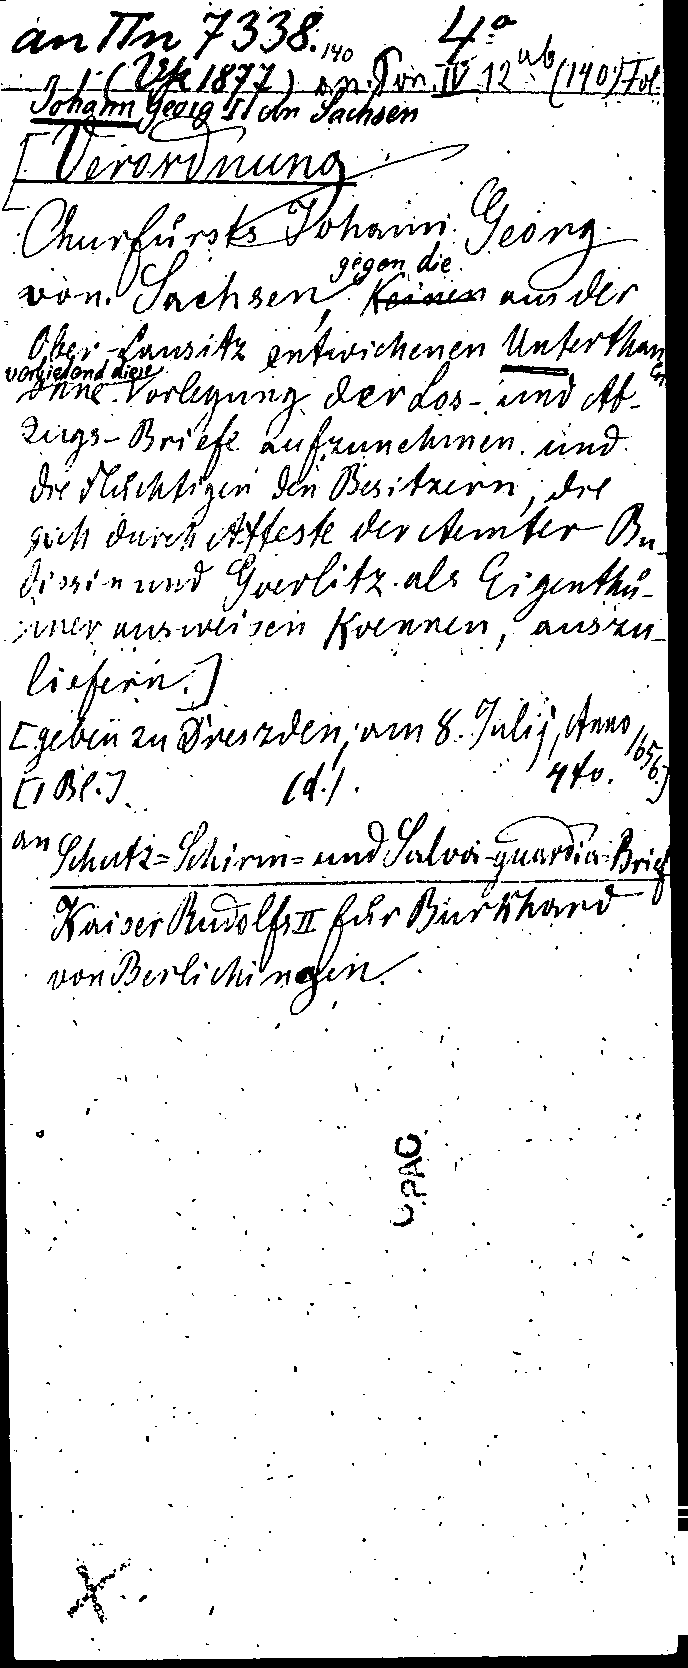 an Tn 7338.140 4º
(Vk 1877) an: Svn. IV 12 ab (140) Fol
Johann Georg II von Sachsen
[Verordnung
Churfürsts Johann Georg
von Sachsen, gegen die Keinen aus der
Ober-Lausitz entwichenen Unterthanen
verbietend diese
ohne Vorlegung der Los- und Ab-
zugs-Briefe aufzunehmen und
die Flüchtigen den Besitzern, die
sich durch Atteste der Aemter Bu-
dissin und Goerlitz als Eigenthü-
mer ausweisen koennen, auszu-
liefern.]
[geben zu Dreszden, am 8. Julij, Anno 1656.]
[1 Bl.] (d.). 4to.
an Schutz=Schirm= und Salva-guardia-Brief
Kaiser Rudolfs II für Burkhard
von Berlichingen.
OPAC